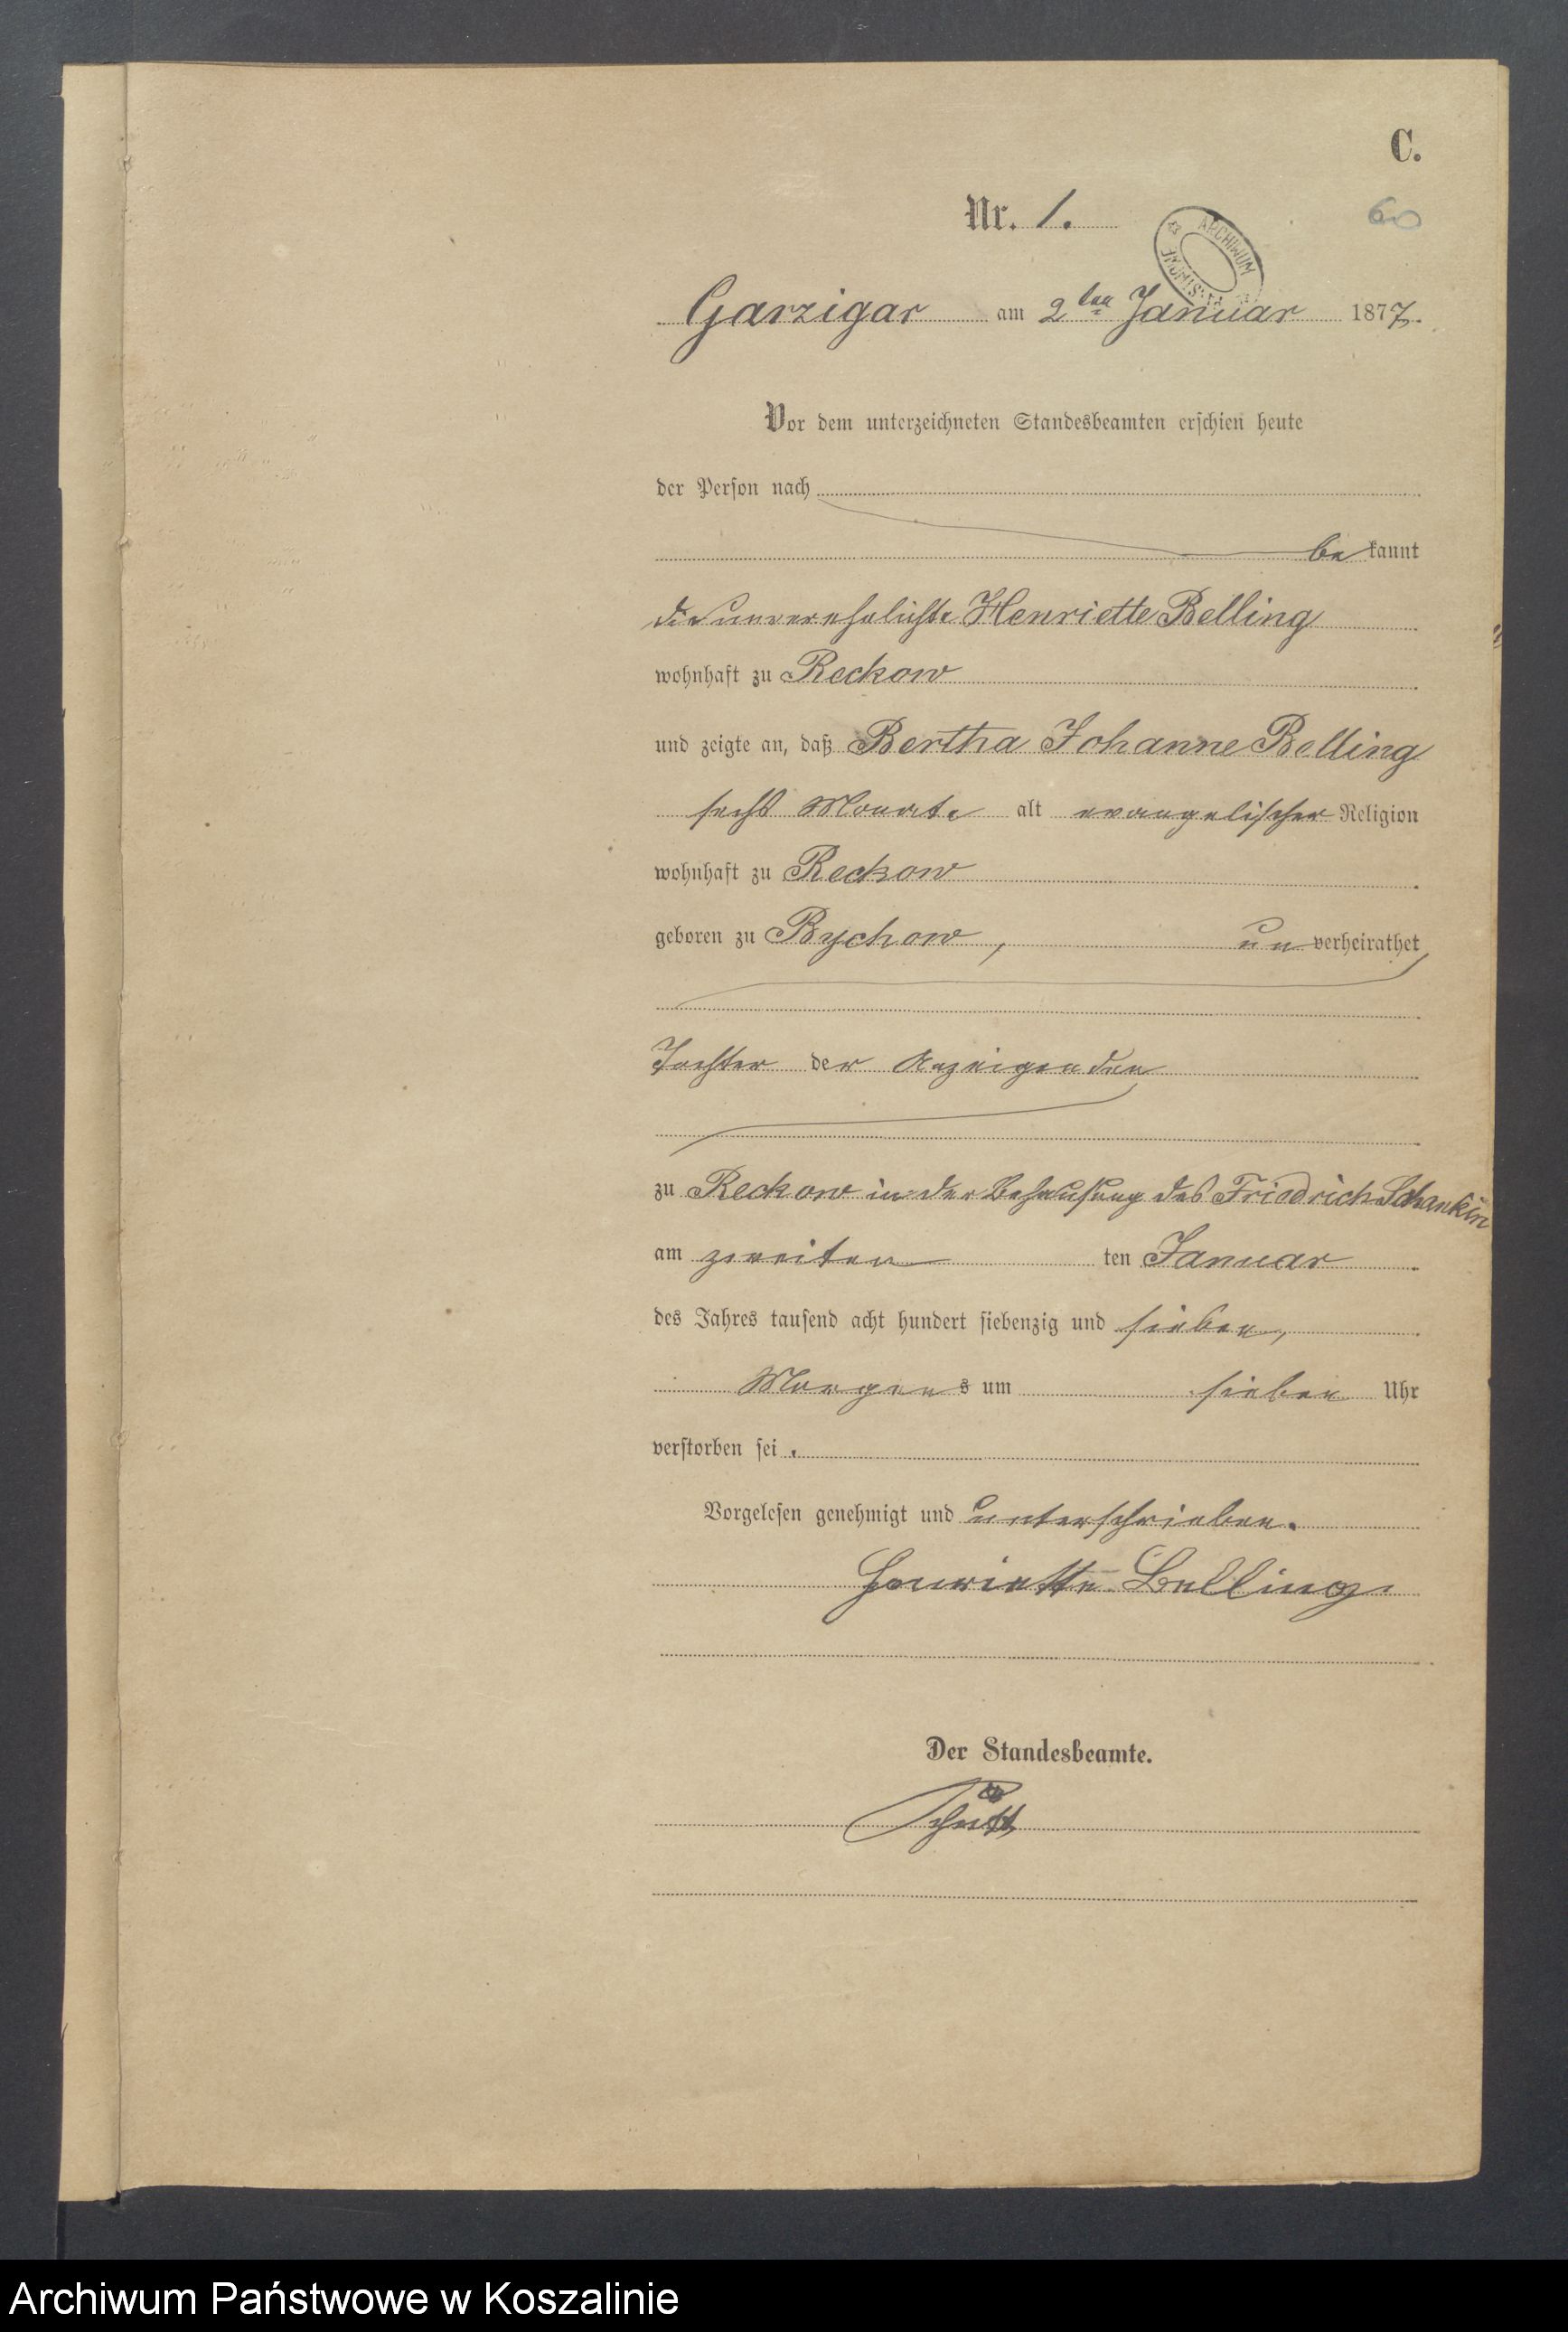 C.
Nr. 1.
60
ARCHIWUM
Garzigar am 2ten Januar 1877.
Vor dem unterzeichneten Standesbeamten erschien heute
der Person nach
be kannt
die unverehelichte Henriette Belling
wohnhaft zu Reckow
und zeigte an, daß Bertha Johanne Belling
sechs Monate alt evangelischer Religion
wohnhaft zu Reckow
geboren zu Bychow, un verheirathet
Tochter der Anzeigenden
zu Reckow in der Behausung des Friedrich Schankin
am zweiten ten Januar
des Jahres tausend acht hundert siebenzig und sieben,
Morgens um sieben Uhr
verstorben sei.
Vorgelesen genehmigt und unterschrieben.
Henriette Belling.
Der Standesbeamte.
Schütt
Archiwum Państwowe w Koszalinie